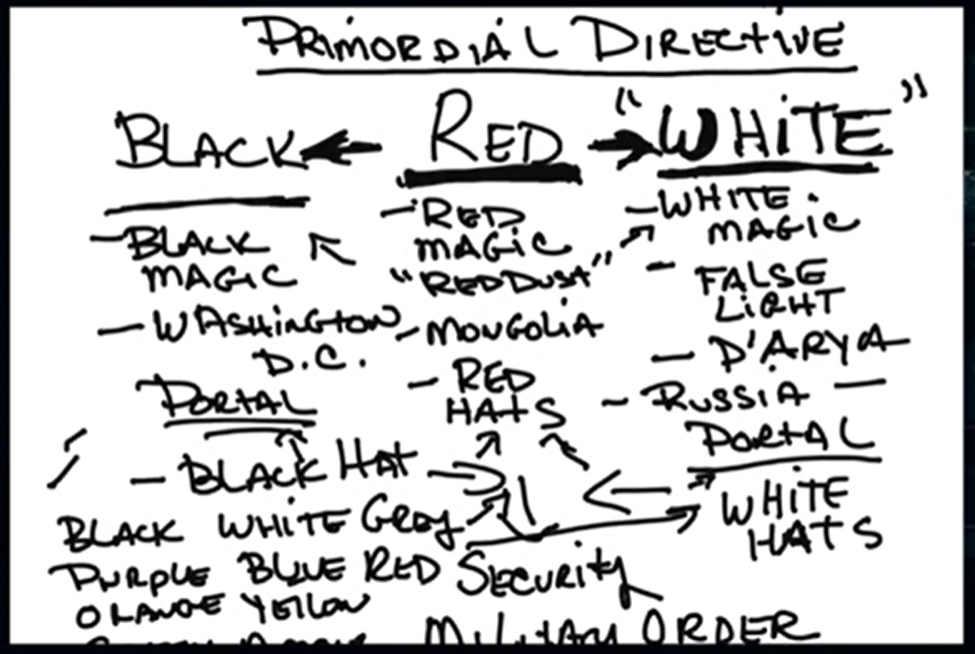 PRIMORDIAL DIRECTIVE
BLACK
RED
"WHITE"
- BLACK
MAGIC
- WASHINGTON
D.C.
PORTAL
- BLACK HAT
- RED
MAGIC
"RED DUST"
- MONGOLIA
- RED
HATS
- WHITE
MAGIC
- FALSE
LIGHT
- D'ARYA
- RUSSIA -
PORTAL
WHITE
HATS
BLACK WHITE GREY
PURPLE BLUE RED SECURITY
ORANGE YELLOW
MILITARY ORDER